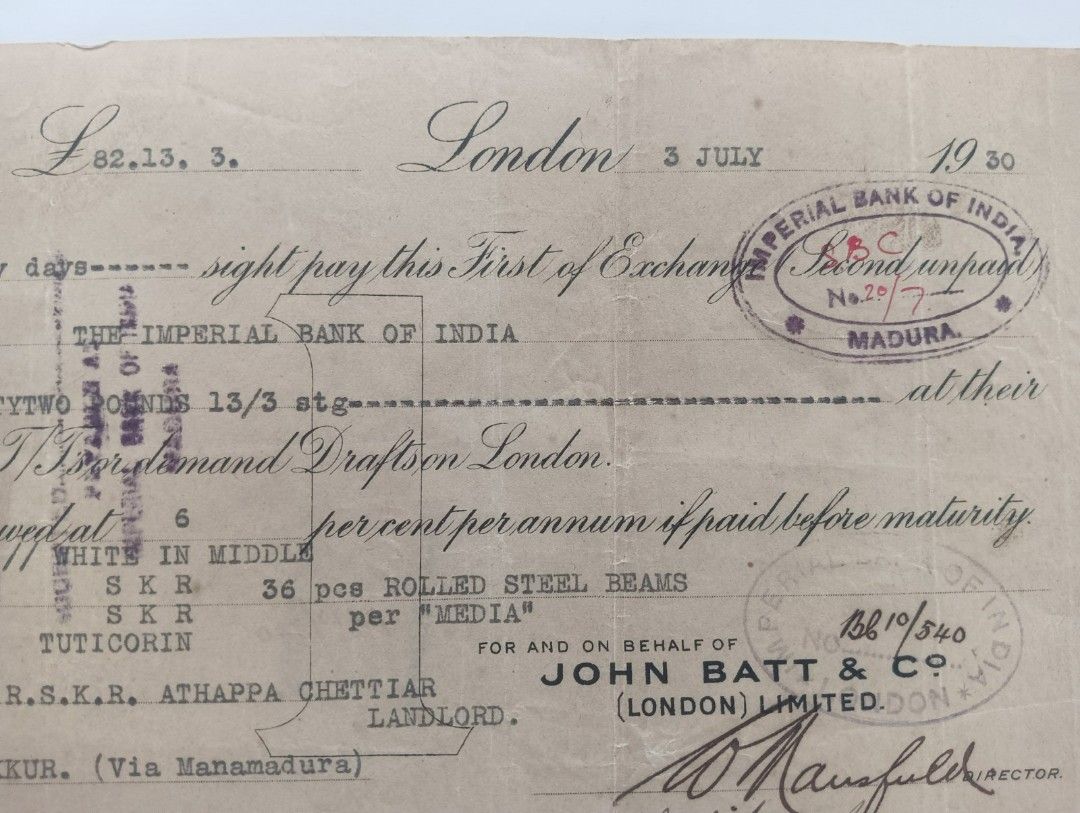 £82.13. 3. London 3 JULY 1930
IMPERIAL BANK OF INDIA.
SBC
No. 20/7
MADURA.
y days------ sight pay this First of Exchange (Second unpaid)
THE IMPERIAL BANK OF INDIA
TYTWO POUNDS 13/3 stg------------------------------------ at their
T/Ts or demand Drafts on London.
wed at 6 per cent per annum if paid before maturity.
WHITE IN MIDDLE
S K R 36 pcs ROLLED STEEL BEAMS
S K R per "MEDIA"
TUTICORIN
IMPERIAL BANK OF INDIA
No. BB 10/540
LONDON
FOR AND ON BEHALF OF
JOHN BATT & Co
(LONDON) LIMITED.
R.S.K.R. ATHAPPA CHETTIAR
LANDLORD.
KKUR. (Via Manamadura)
W Mansfield DIRECTOR.
IMPERIAL BANK OF INDIA
MADURA